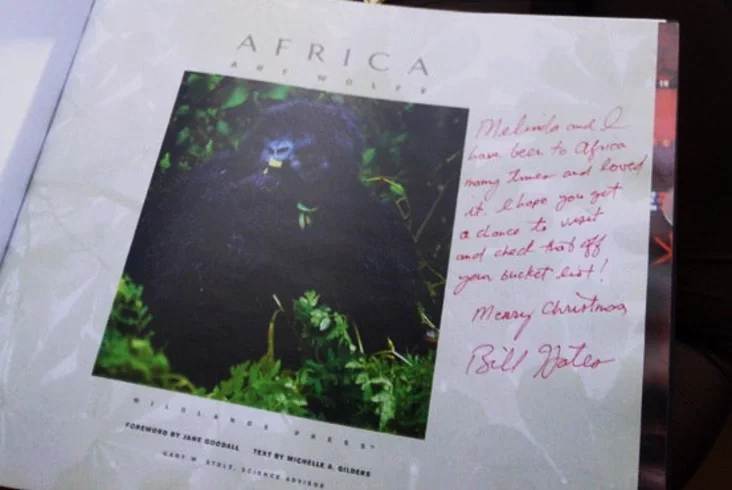 AFRICA
ART WOLFE
Melinda and I
have been to Africa
many times and loved
it. I hope you get
a chance to visit
and check that off
your bucket list!
Merry Christmas
Bill Gates
WILDLANDS PRESS™
FOREWORD BY JANE GOODALL TEXT BY MICHELLE A. GILDERS
GARY M. STOLZ, SCIENCE ADVISOR